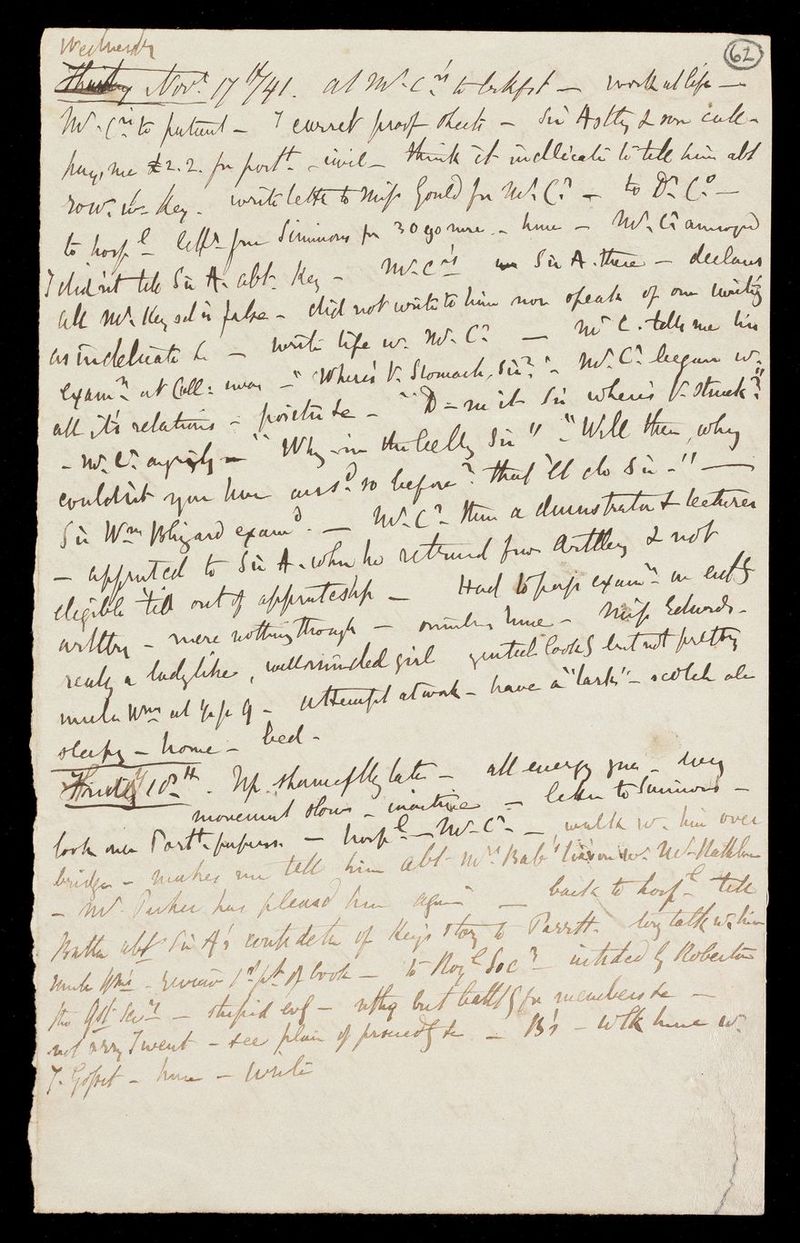 Wednesdy
62
Thursday Novr. 17th/41. at Mr. C.'s to brkfst – work at life –
Mr. C.'s to patient – I correct proof sheets – Sir Astley & son call –
pays me £2.2. for portt. – civil – think it indelicate to tell him abt
row w. Key. write letter to Miss Gould for Mr. C. – to Dr. C. –
to hospl – lettr from Simmons for 30 more – home – Mr. C. annoyed
I didn't tell Sir A. abt. Key – Mr. C's Sir A. there – declares
all Mr. Key sd is false – did not write to him nor speak of our writing
as indelicate &c – write life w. Mr. C. – Mr C. tells me his
examn. at Coll: was – "Where's yr. Stomach, Sir?" – Mr. C. began w.
all it's relations – posture &c – "D–n it Sir where's yr. stomk?"
– Mr. C. angrily – "Why – in the belly Sir" – "Well then, why
couldn't you have ansd. so before? that 'll do Sir –" –
Sir Wm Blizard examd. – Mr. C. then a demonstrator & lecturer
– apprnted to Sir A. when he returned from Artlley & not
eligible 'till out of apprnteship – Had to pass examn. in
artlley – mere nothing though – home – Miss Edwards –
really a ladylike, wellminded girl genteel lookg but not pretty
Wm at – attempt at work – have a "lark" – scotch ale
sleepy – home – bed –
18th. Up shamefully late – all energy gone – very
movement slow – inactive – letter to Simmons –
look over Portt. papers – hospl – Mr. C. – walk w. him over
bridge – makes me tell him abt Mrs Bab's liaison w. Mr.
– Mr. Parker has pleased him again – back to hospl. tell
abt Sir A's of Key's story to Parrott. long talk w. him
– review 1st. pt. of book – to Royl Socy – intrded by Roberton
– stupid evg – nthg but ballotg for members &c –
not sorry I went – see plan of proceedg &c – B's – wlk home w.
T. – home – write